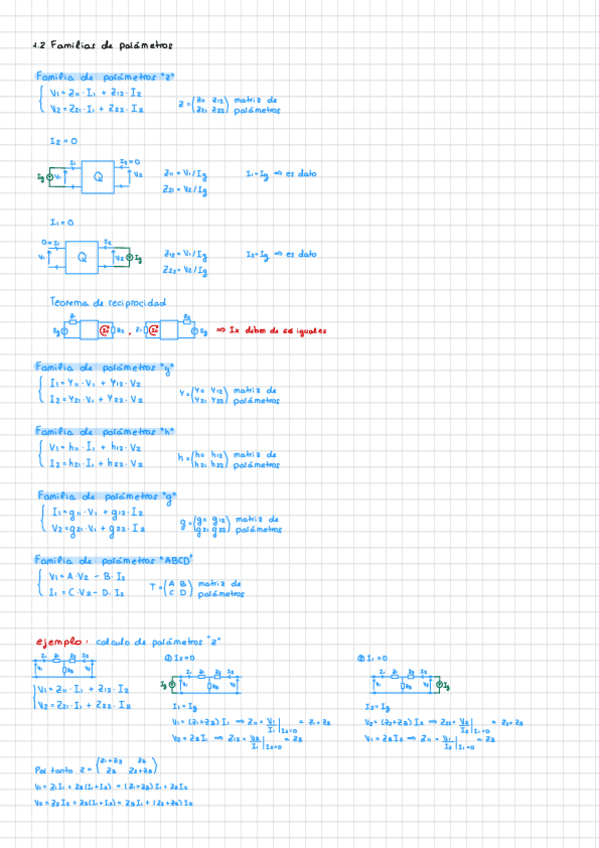 1.2 Familias de parámetros
Familia de parámetros "z"
V1 = Z11 · I1 + Z12 · I2
V2 = Z21 · I1 + Z22 · I2
Z = (Z11 Z12 Z21 Z22) matriz de parámetros
I2 = 0
Ig V1 I1 Q I2=0 V2
Z11 = V1/Ig
I1 = Ig ⇒ es dato
Z21 = V2/Ig
I1 = 0
0 = I1 V1 Q I2 V2 Ig
Z12 = V1/Ig
I2 = Ig ⇒ es dato
Z22 = V2/Ig
Teorema de reciprocidad
⇒ Ix deben de ser iguales
Familia de parámetros "y"
I1 = Y11 · V1 + Y12 · V2
I2 = Y21 · V1 + Y22 · V2
Y = (Y11 Y12 Y21 Y22) matriz de parámetros
Familia de parámetros "h"
V1 = h11 · I1 + h12 · V2
I2 = h21 · I1 + h22 · V2
h = (h11 h12 h21 h22) matriz de parámetros
Familia de parámetros "g"
I1 = g11 · V1 + g12 · I2
V2 = g21 · V1 + g22 · I2
g = (g11 g12 g21 g22) matriz de parámetros
Familia de parámetros "ABCD"
V1 = A · V2 - B · I2
I1 = C · V2 - D · I2
T = (A B C D) matriz de parámetros
ejemplo: calculo de parámetros "z"
V1 = Z11 · I1 + Z12 · I2
V2 = Z21 · I1 + Z22 · I2
① I2 = 0
I1 = Ig
V1 = (Z1+Z3) I1 ⇒ Z11 = V1/I1 | I2=0 = Z1 + Z3
V2 = Z3 I1 ⇒ Z12 = V2/I1 | I2=0 = Z3
② I1 = 0
I2 = Ig
V2 = (Z2+Z3) I2 ⇒ Z22 = V2/I2 | I1=0 = Z2 + Z3
V1 = Z3 I2 ⇒ Z11 = V1/I2 | I1=0 = Z3
Por tanto Z = (Z1+Z3 Z3 Z3 Z2+Z3)
V1 = Z1 I1 + Z3 (I1+I2) = (Z1+Z3) I1 + Z3 I2
V2 = Z2 I2 + Z3 (I1+I2) = Z3 I1 + (Z2+Z3) I2